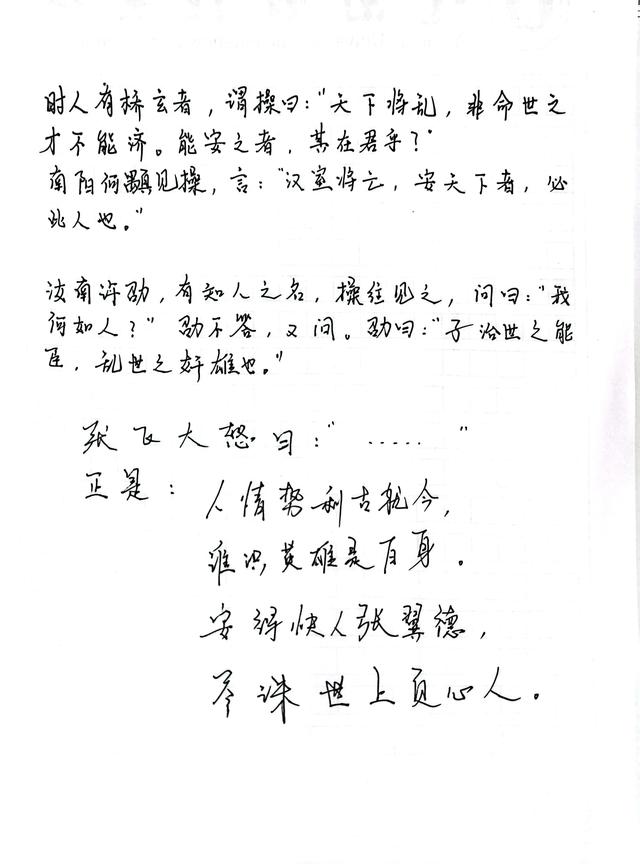 时人有桥玄者，谓操曰："天下将乱，非命世之
才不能济。能安之者，其在君乎？"
南阳何顒见操，言："汉室将亡，安天下者，必
此人也。"
汝南许劭，有知人之名，操往见之，问曰："我
何如人？"劭不答，又问。劭曰："子治世之能
臣，乱世之奸雄也。"
张飞大怒曰："……"
正是：人情势利古犹今，
谁识英雄是白身。
安得快人张翼德，
尽诛世上负心人。